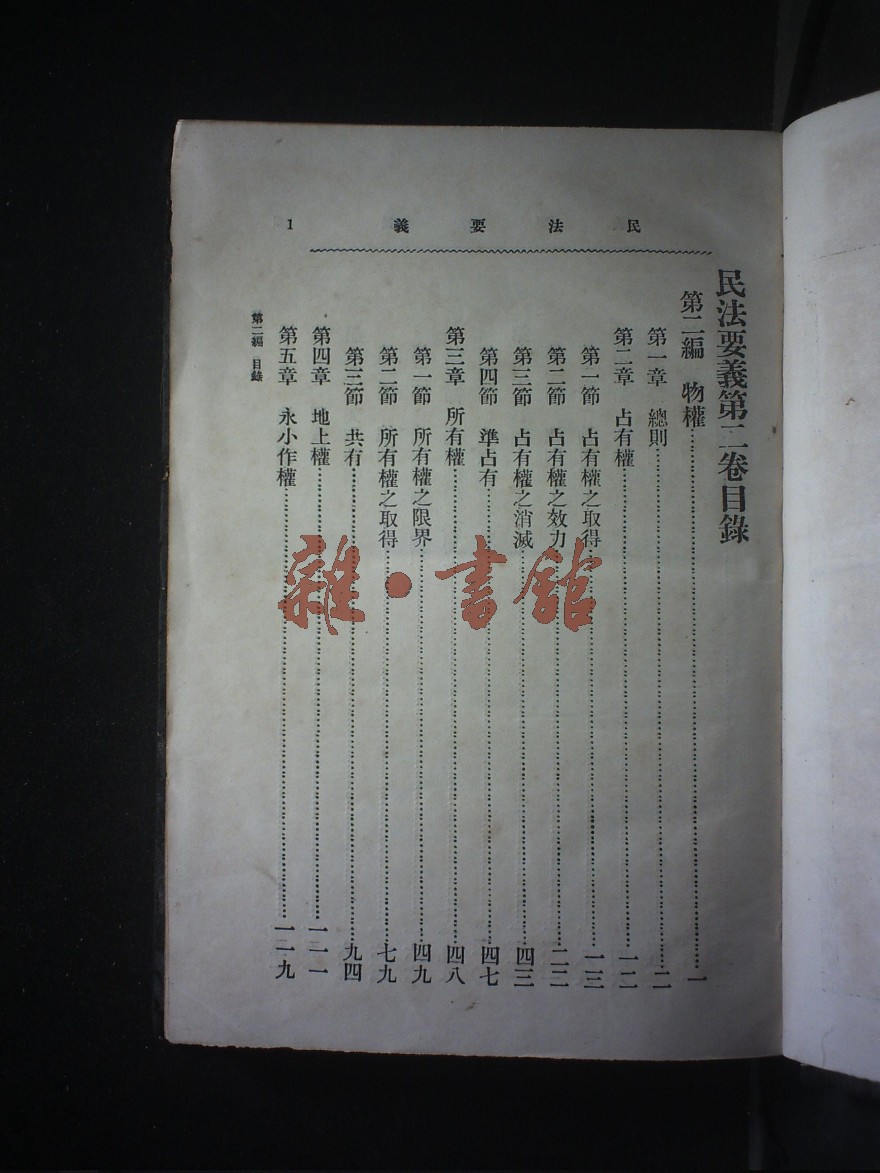 民法要義 1
民法要義第二卷目錄
第二編 物權……一
第一章 總則……二
第二章 占有權……一二
第一節 占有權之取得……一三
第二節 占有權之效力……二二
第三節 占有權之消滅……四三
第四節 準占有……四七
第三章 所有權……四八
第一節 所有權之限界……四九
第二節 所有權之取得……七九
第三節 共有……九四
第四章 地上權……一二一
第五章 永小作權……一二九
第二編 目錄
雜·書館